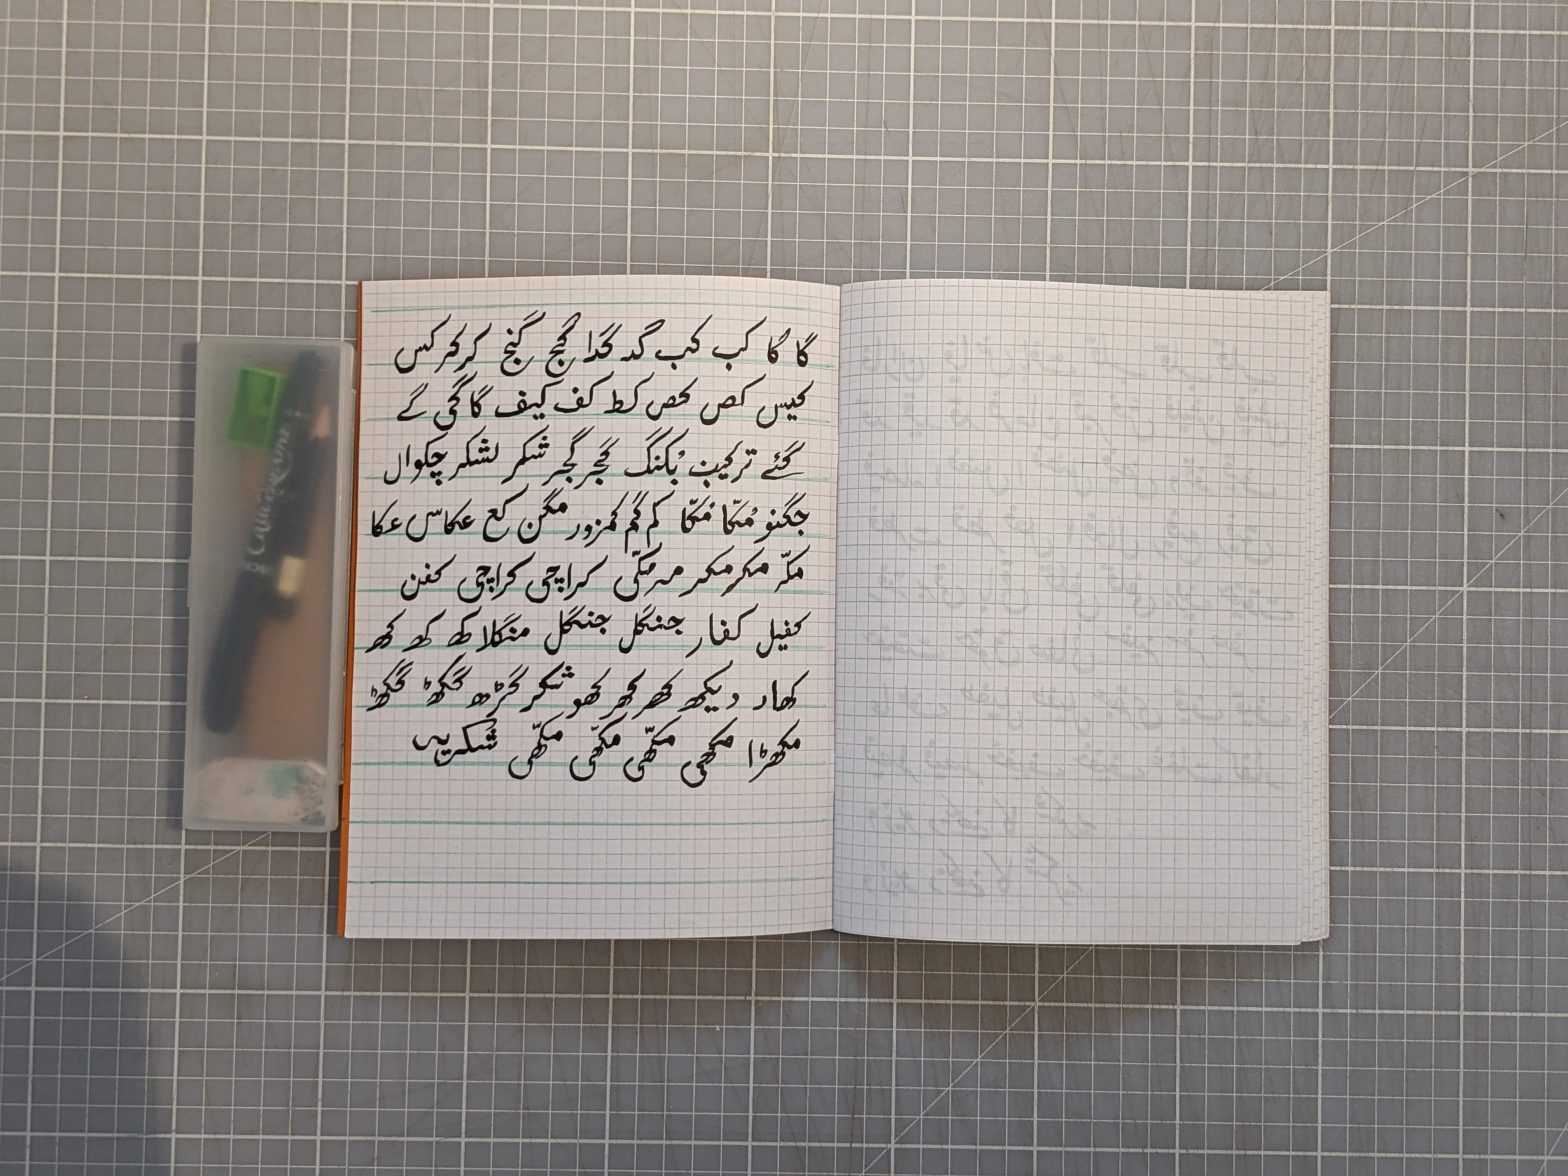 گا گا کب کب گد گدا گج گنج کر کر کس
کیس کص کص کط کف کیف گا گی گے
گئے ترکیب بکنگ گجر گجر شکر لشکر چکوال
جگنو مکا مکا کم گم کمزور مگن کع عکاس عکا
مکر مکر مکر مکی کراچی کراچی کفن
کفیل کفار جنگل جنگل منگلا کھ کھ کھ
کھار دیکھ کھر کھر کھو شکر گڑھ گکھڑ گکھڑ
مکھڑا مکھی مکھی مکھی مکھی شکریہ